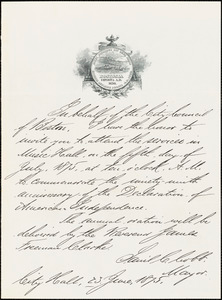 In behalf of the City Council
of Boston, I have the honor to
invite you to attend the services in
Music Hall, on the fifth day of
July, 1875, at ten o'clock, A.M.
to commemorate the ninety-ninth
anniversary of the Declaration
of American Independence.
The annual oration will be
delivered by the Reverend James
Freeman Clarke.
Saml. C. Cobb.
Mayor.
City Hall, 23 June, 1875.